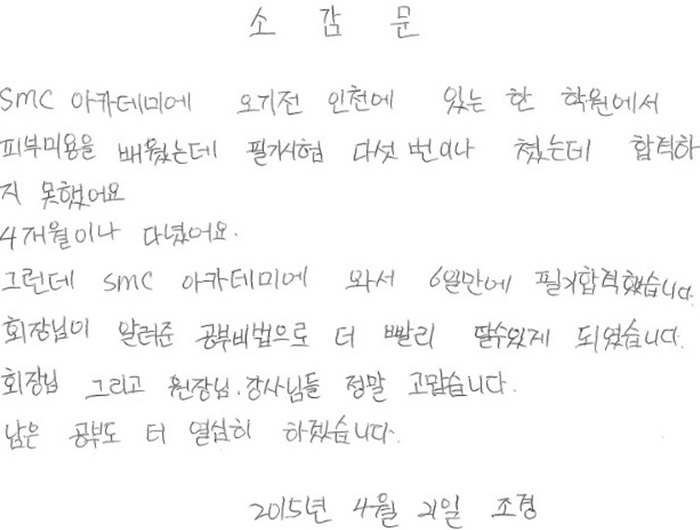 소 감 문
SMC 아카데미에 오기전 인천에 있는 한 학원에서
피부미용을 배웠는데 필기시험 다섯 번이나 쳤는데 합격하
지 못했어요
4개월이나 다녔어요.
그런데 SMC 아카데미에 와서 6일만에 필기합격했습니다.
회장님이 알려준 공부비법으로 더 빨리 딸수있게 되었습니다.
회장님 그리고 원장님.강사님들 정말 고맙습니다.
남은 공부도 더 열심히 하겠습니다.
2015년 4월 21일 조경